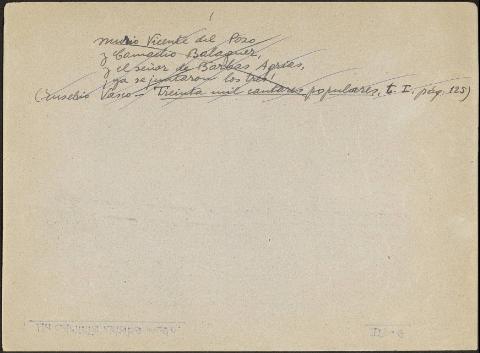 1
Murio Vicente del Pozo
y Camacho Balaguer,
y el Señor de Barbas Agrias,
¡ya se juntaron los tres!
(Eusebio Vasco - Treinta mil cantares populares, t. I. pág. 125)